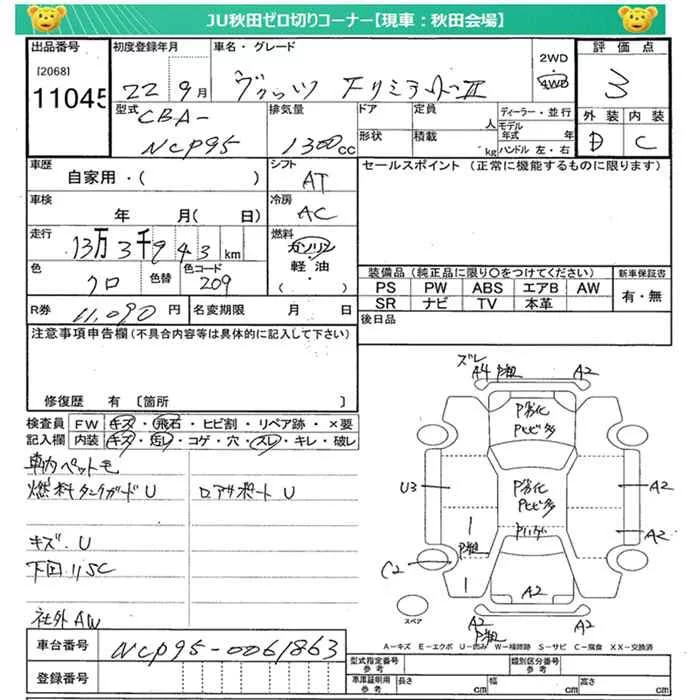 JU秋田ゼロ切りコーナー【現車：秋田会場】
出品番号 初度登録年月 車名・グレード 2WD 4WD 評価点
[2068]
11045 22 9月 ヴィッツ FリミテッドII 3
型式 CBA- 排気量 ドア 定員 人 ディーラー・並行 外装 内装
モデル年式 年
NCP95 1300cc 形状 積載 kg ハンドル 左・右 D C
車歴 シフト セールスポイント (正常に機能するものに限ります)
自家用・( ) AT
車検 冷房
年 月( 日) AC
走行 燃料
13万3千943km ガソリン
軽油
・( )
色 クロ 色替 色コード 209
装備品 (純正品に限り○をつけてください) 新車保証書
PS PW ABS エアB AW 有・無
SR ナビ TV 本革
R券 11,090円 名変期限 月 日 後日品
注意事項申告欄(不具合内容等は具体的に記入して下さい)
修復歴 有 〔箇所 〕
検査員 FW キズ・飛石・ヒビ割・リペア跡・×要
記入欄 内装 キズ・汚レ・コゲ・穴・スレ・キレ・破レ
車内ペット毛
燃料タンクガード U ロアサポート U
キズ.U
下回リSC
社外AW
ズレ
A4 P粗 A2
P劣化
Pヒビ多
U3 P劣化 A2
Pヒビ多
P粗 A2
C2
A2
A2 A2
P粗
スペア
A-キズ E-エクボ U-凹み W-補修跡 S-サビ C-腐食 XX-交換済
車台番号 NCP95-0061863
登録番号
型式指定番号 参考 類別区分番号 参考
車庫証明用 参考 長さ cm 幅 cm 高さ cm